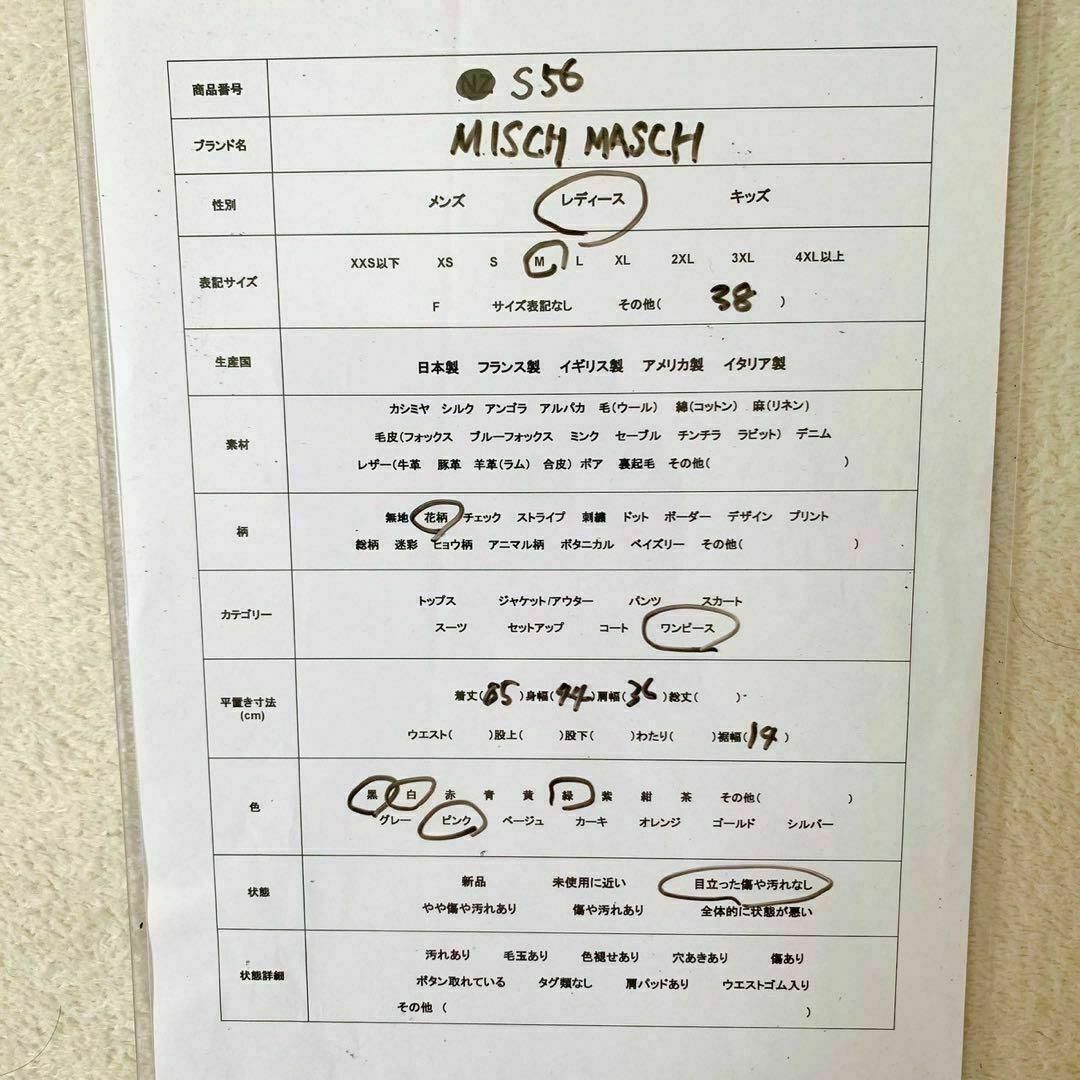 商品番号 NZ S56
ブランド名 MISCH MASCH
性別 メンズ レディース キッズ
表記サイズ XXS以下 XS S M L XL 2XL 3XL 4XL以上
F サイズ表記なし その他( 38 )
生産国 日本製 フランス製 イギリス製 アメリカ製 イタリア製
素材 カシミヤ シルク アンゴラ アルパカ 毛(ウール) 綿(コットン) 麻(リネン)
毛皮(フォックス ブルーフォックス ミンク セーブル チンチラ ラビット) デニム
レザー(牛革 豚革 羊革(ラム) 合皮) ボア 裏起毛 その他( )
柄 無地 花柄 チェック ストライプ 刺繍 ドット ボーダー デザイン プリント
総柄 迷彩 ヒョウ柄 アニマル柄 ボタニカル ペイズリー その他( )
カテゴリー トップス ジャケット/アウター パンツ スカート
スーツ セットアップ コート ワンピース
平置き寸法 (cm) 着丈(85)身幅(44)肩幅(36)総丈( )
ウエスト( )股上( )股下( )わたり( )裾幅(19)
色 黒 白 赤 青 黄 緑 紫 紺 茶 その他( )
グレー ピンク ベージュ カーキ オレンジ ゴールド シルバー
状態 新品 未使用に近い 目立った傷や汚れなし
やや傷や汚れあり 傷や汚れあり 全体的に状態が悪い
状態詳細 汚れあり 毛玉あり 色褪せあり 穴あきあり 傷あり
ボタン取れている タグ類なし 肩パッドあり ウエストゴム入り
その他 ( )